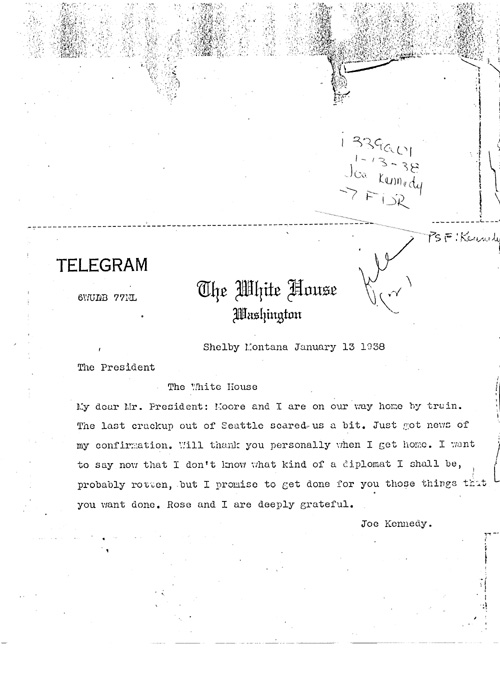 1-13-38
Joe Kennedy
→ FDR
PSF: Kennedy
file
TELEGRAM
The White House
Washington
6WUDB 77NL
Shelby Montana January 13 1938
The President
The White House
My dear Mr. President: Moore and I are on our way home by train.
The last crackup out of Seattle scared us a bit. Just got news of
my confirmation. Will thank you personally when I get home. I want
to say now that I don't know what kind of a diplomat I shall be,
probably rotten, but I promise to get done for you those things that
you want done. Rose and I are deeply grateful.
Joe Kennedy.